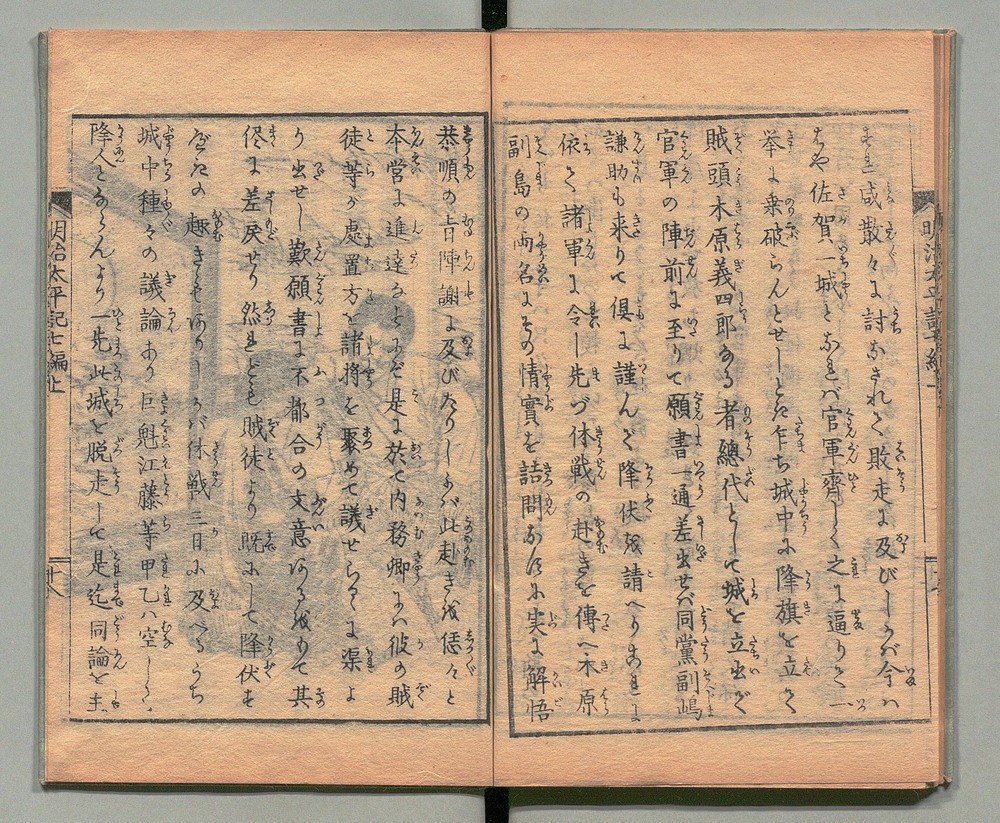 咸散々に討なされて敗走に及びしかバ今ハ
はや佐賀一城となれバ官軍齊しく之に逼りて一
挙に乗破らんとせしとき乍ち城中に降旗を立て
賊頭木原義四郎なる者總代として城を立出で
官軍の陣前に至りて願書一通差出せバ同黨副嶋
謙助も来りて俱に謹んで降伏を請へり
依て諸軍に令し先づ休戦の赴きを傳へ木原
副島の両名にその情實を詰問なすに実に解悟
恭順の旨陣謝に及びたりしかバ此赴きを偐々と
本営に進達なすにぞ是に於て内務卿にハ彼の賊
徒等が處置方を諸将を聚めて議せらるゝに渠よ
り出せし歎願書に不都合の文意あるを以て其
侭に差戻せり然れども賊徒より既にして降伏を
趣きもありしかバ休戦三日に及べるうち
城中種々の議論あり巨魁江藤等甲乙ハ空しく
降人とならんより一先此城を脱走して是迄同論を主
明治太平記七編上